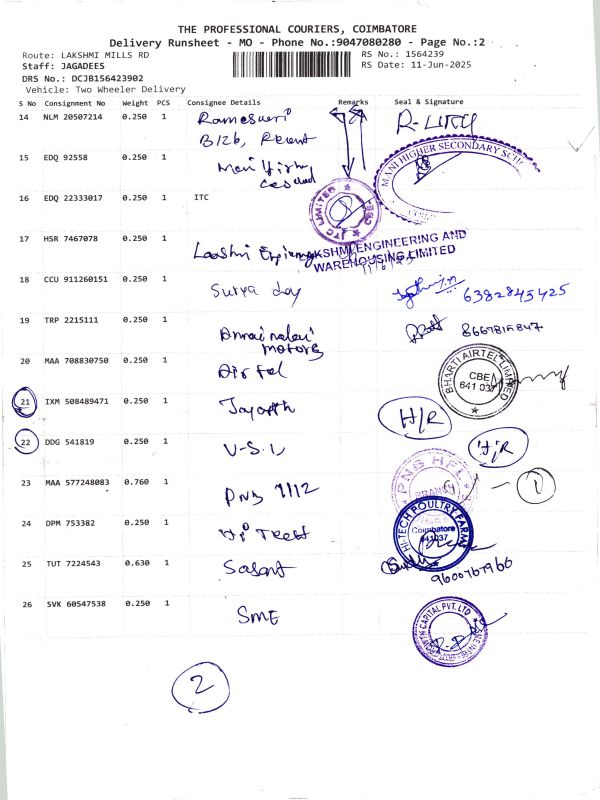 THE PROFESSIONAL COURIERS, COIMBATORE
Delivery Runsheet - MO - Phone No.:9047080280 - Page No.:2
Route: LAKSHMI MILLS RD
RS No.: 1564239
Staff: JAGADEES
RS Date: 11-Jun-2025
DRS No.: DCJB156423902
Vehicle: Two Wheeler Delivery
S No Consignment No Weight PCS Consignee Details Remarks Seal & Signature
14 NLM 20507214 0.250 1 Rameshwri
B126,
15 EDQ 92558 0.250 1 Mani
MANI HIGHER SECONDARY
16 EDQ 22333017 0.250 1 ITC
ITC LIMITED
17 HSR 7467078 0.250 1 Lakshmi
LAKSHMI ENGINEERING AND
WAREHOUSING LIMITED
18 CCU 911260151 0.250 1 Surya
6382845425
19 TRP 2215111 0.250 1 Annamalai
motors
8667815847
20 MAA 708830750 0.250 1 Airtel
BHARTI AIRTEL LIMITED
CBE
641 037
21 IXM 508489471 0.250 1 Jayanth H/R
22 DDG 541819 0.250 1 U.S.V H/R
23 MAA 577248083 0.760 1 PNB
PNB HFL
BRANCH
1
24 DPM 753382 0.250 1 Hi Tech
HI-TECH POULTRY FARM
Coimbatore
641037
25 TUT 7224543 0.630 1
9600767966
26 SVK 60547538 0.250 1 SME
CAPITAL PVT. LTD
2